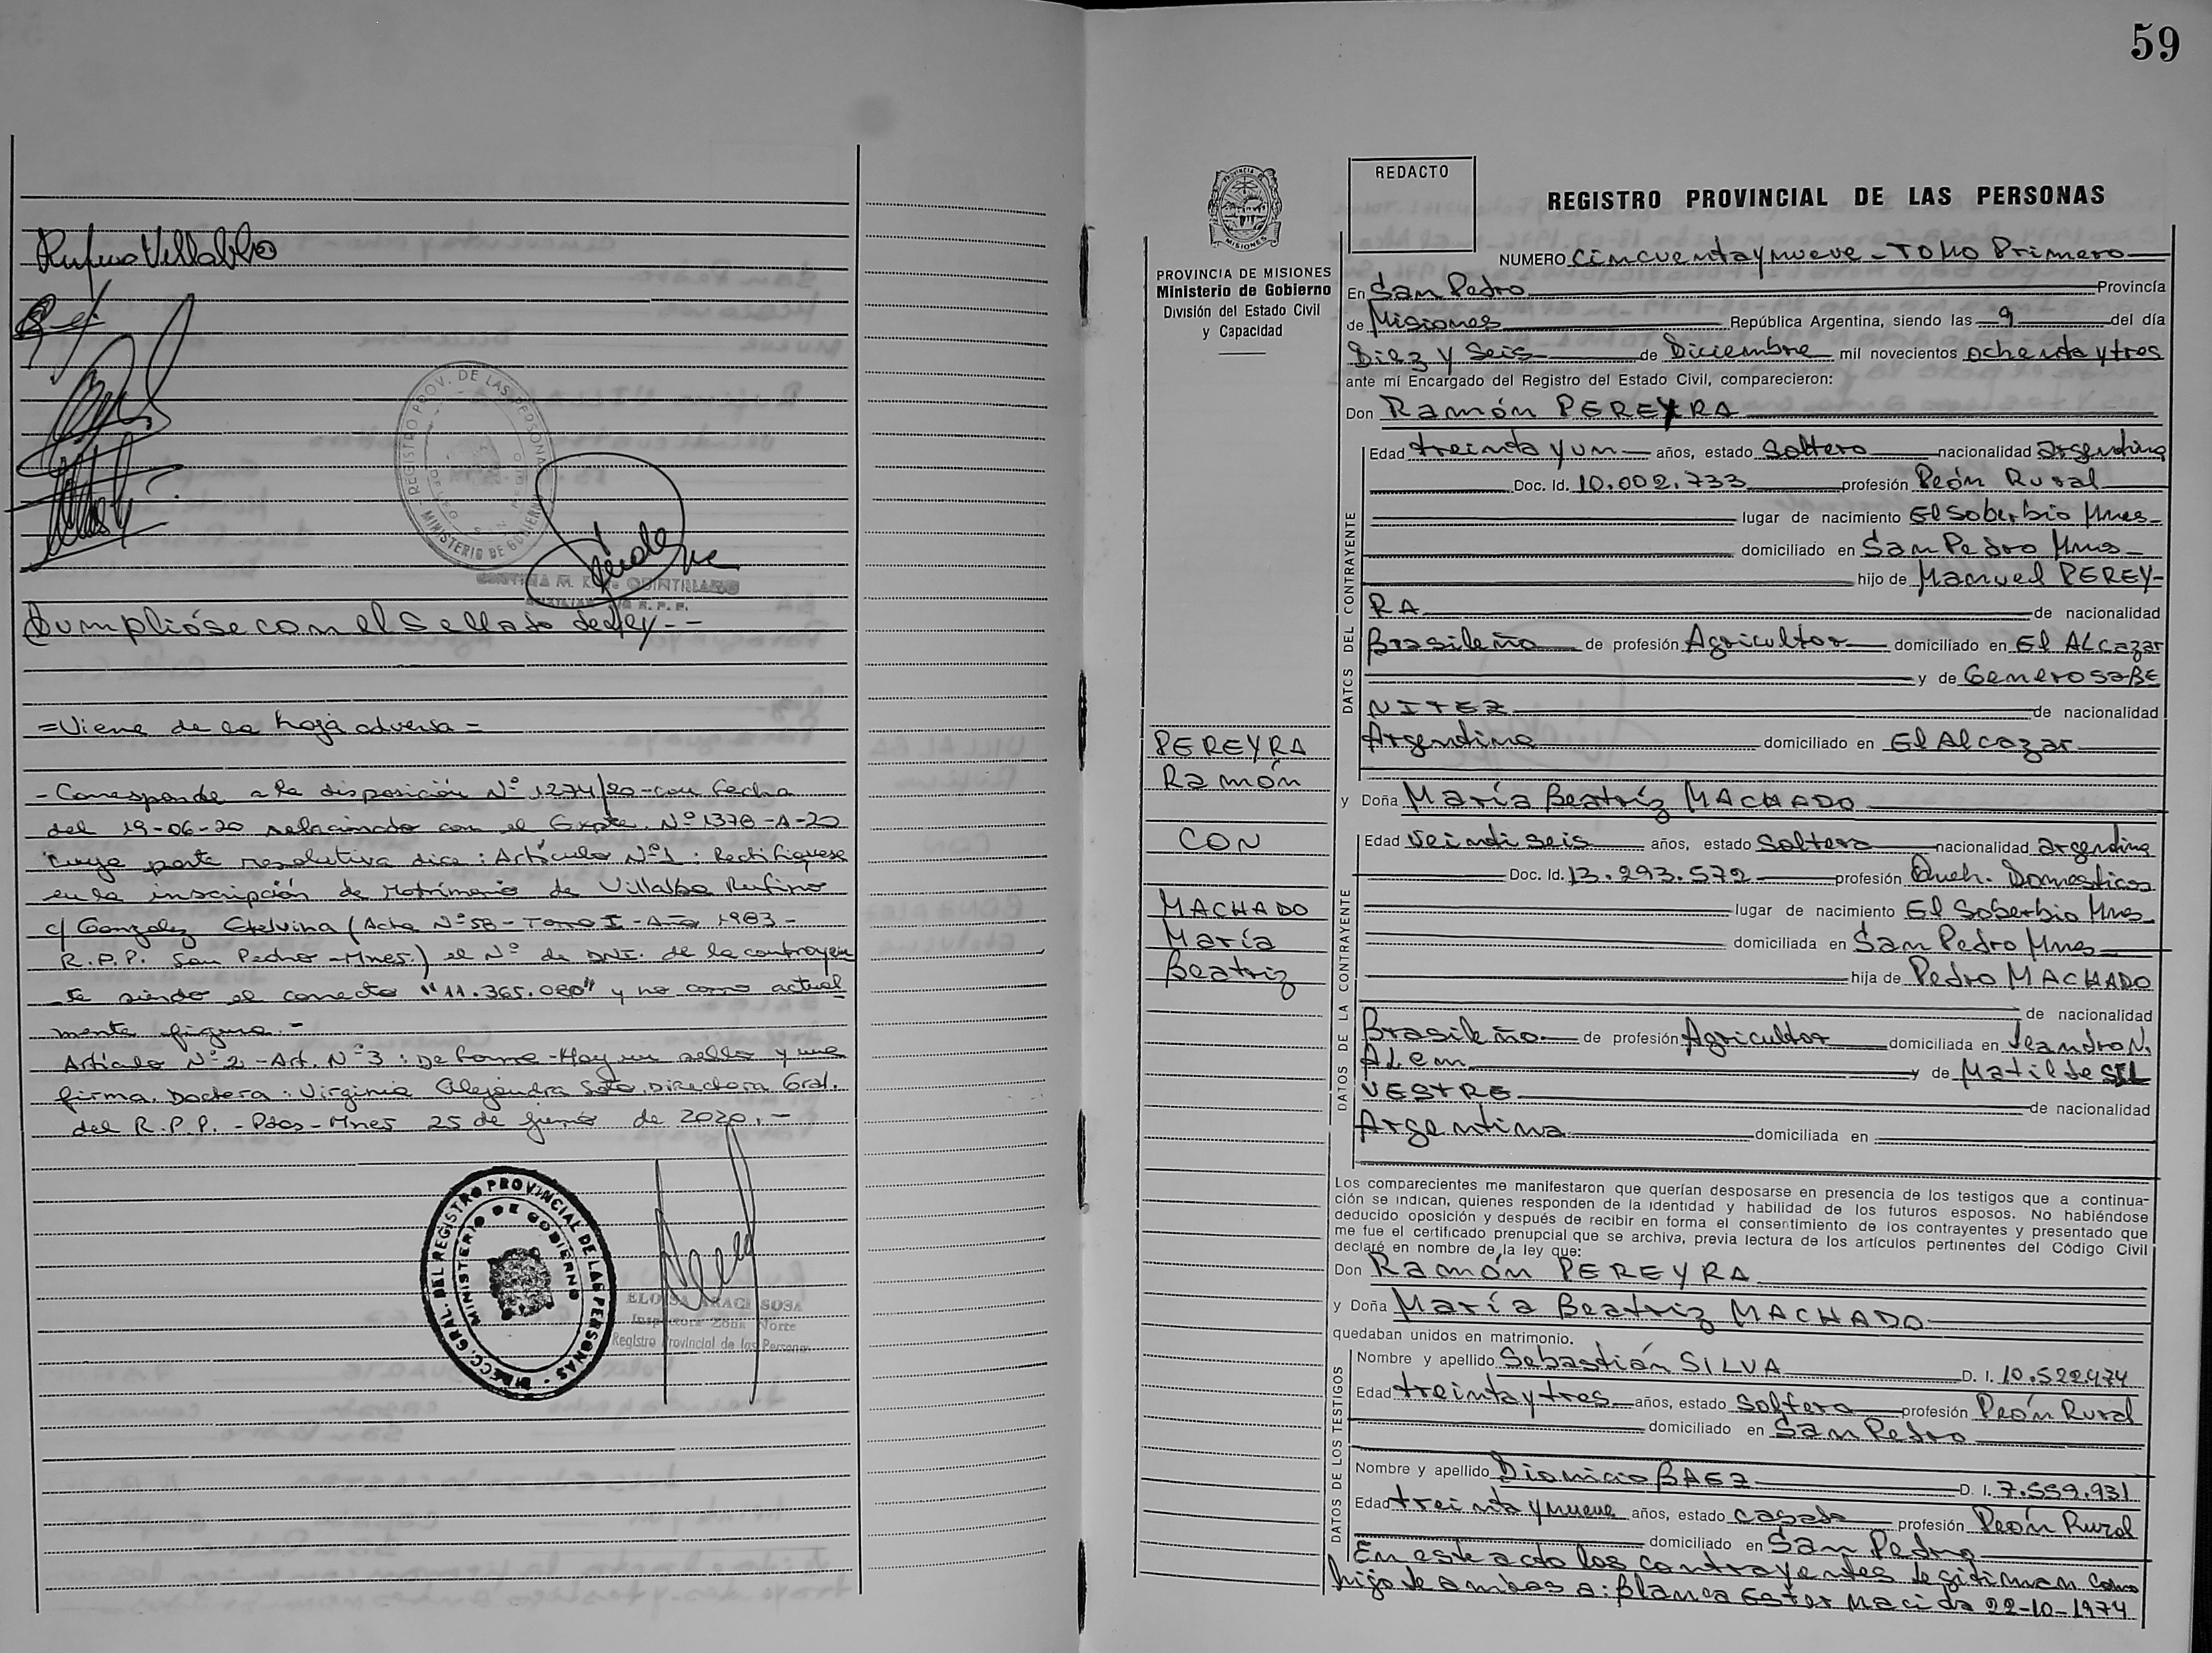 Rufino Villalba
REGISTRO PROV. DE LAS PERSONAS
MINISTERIO DE GOBIERNO
Cumplióse con el Sellado de Ley.--
=Viene de la hoja adversa=
- Corresponde a la disposición Nº 1274/20 - con fecha
del 19-06-20 relacionado con el Expte. Nº 1378-A-20
cuya parte resolutiva dice: Artículo Nº1: Rectifiquese
en la inscripción de Matrimonio de Villalba Rufino
c/ Gonzalez Etelvina (Acta Nº58 - Tomo I - Año 1983 -
R.P.P. San Pedro - Mnes.) el Nº de DNI. de la contrayen
te siendo el correcto "11.365.080" y no como actual
mente figura.-
Artículo Nº2 - Art. Nº3: De forma - Hay un sello y una
firma. Doctora: Virginia Alejandra Soto. Directora Gral.
del R.P.P. - Pdas - Mnes 25 de junio de 2020.-
DIRECC. GRAL. DEL REGISTRO PROVINCIAL DE LAS PERSONAS
MINISTERIO DE GOBIERNO
ELOISA ARACI SOSA
Inspectora Zona Norte
Registro Provincial de las Personas
59
REDACTO
REGISTRO PROVINCIAL DE LAS PERSONAS
PROVINCIA DE MISIONES
Ministerio de Gobierno
División del Estado Civil
y Capacidad
NUMERO cincuenta y nueve - TOMO Primero
En San Pedro Provincia
de Misiones República Argentina, siendo las 9 del día
Diez y Seis de Diciembre mil novecientos ochenta y tres
ante mí Encargado del Registro del Estado Civil, comparecieron:
Don Ramón PEREYRA
DATOS DEL CONTRAYENTE
Edad treinta y un años, estado Soltero nacionalidad argentina
Doc. Id. 10.002.733 profesión Peón Rural
lugar de nacimiento El Soberbio Mnes-
domiciliado en San Pedro Mnes-
hijo de Manuel PEREY-
RA de nacionalidad
Brasileño de profesión Agricultor domiciliado en El ALcazar
y de Generosa BE
NITEZ de nacionalidad
Argentina domiciliado en El Alcazar
PEREYRA
Ramón
CON
MACHADO
María
Beatriz
y Doña María Beatríz MACHADO
DATOS DE LA CONTRAYENTE
Edad Veintiseis años, estado Soltera nacionalidad argentina
Doc. Id. 13.293.572 profesión Queh. Domesticos
lugar de nacimiento El Soberbio Mnes
domiciliada en San Pedro Mnes
hija de Pedro MACHADO
de nacionalidad
Brasileño de profesión Agricultor domiciliada en Leandro N.
ALem y de Matilde SIL
VESTRE de nacionalidad
Argentina domiciliada en
Los comparecientes me manifestaron que querían desposarse en presencia de los testigos que a continua-
ción se indican, quienes responden de la identidad y habilidad de los futuros esposos. No habiéndose
deducido oposición y después de recibir en forma el consentimiento de los contrayentes y presentado que
me fue el certificado prenupcial que se archiva, previa lectura de los artículos pertinentes del Código Civil
declaré en nombre de la ley que:
Don Ramón PEREYRA
y Doña María Beatriz MACHADO
quedaban unidos en matrimonio.
DATOS DE LOS TESTIGOS
Nombre y apellido Sebastián SILVA D. I. 10.522.474
Edad treinta y tres años, estado Soltero profesión Peón Rural
domiciliado en San Pedro
Nombre y apellido Dionicio BAEZ D. I. 7.559.931
Edad treinta y nueve años, estado casado profesión Peón Rural
domiciliado en San Pedro
En este acto los contrayentes legitiman como
hijo de ambos a: Blanca Ester nacida 22-10-1974